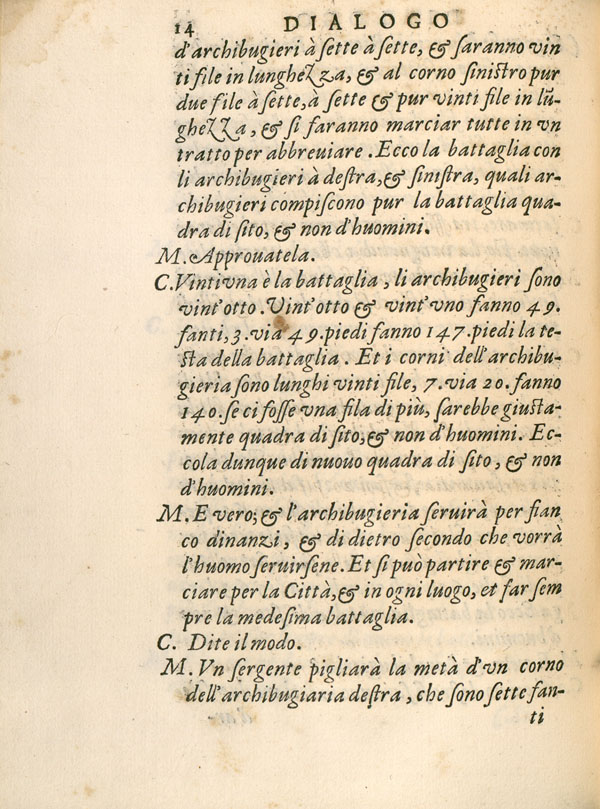 14 DIALOGO
d'archibugieri à ſette à ſette, & ſaranno vin
ti file in lunghezza, & al corno ſiniſtro pur
due file à ſette, à ſette & pur vinti file in lũ-
ghezza, & ſi faranno marciar tutte in vn
tratto per abbreuiare. Ecco la battaglia con
li archibugieri à deſtra, & ſiniſtra, quali ar-
chibugieri compiſcono pur la battaglia qua-
dra di ſito, & non d'huomini.
M. Approuatela.
C. Vintiuna è la battaglia, li archibugieri ſono
vint'otto. Vint'otto & vint'vno fanno 49.
fanti, 3. via 49. piedi fanno 147. piedi la te-
ſta della battaglia. Et i corni dell'archibu-
gieria ſono lunghi vinti file, 7. via 20. fanno
140. ſe ci foſſe vna fila di più, ſarebbe giuſta-
mente quadra di ſito, & non d'huomini. Ec-
cola dunque di nuouo quadra di ſito, & non
d'huomini.
M. E vero; & l'archibugieria ſeruirà per fian
co dinanzi, & di dietro secondo che vorrà
l'huomo ſeruirſene. Et ſi può partire & mar-
ciare per la Città, & in ogni luogo, et far ſem
pre la medeſima battaglia.
C. Dite il modo.
M. Vn ſergente pigliarà la metà d'vn corno
dell'archibugiaria deſtra, che ſono ſette fan-
ti